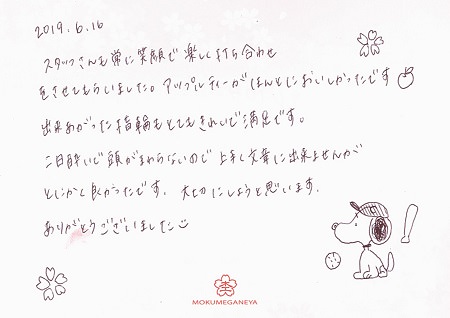 2019.6.16
スタッフさんも常に笑顔で楽しく打ち合わせ
をさせてもらいました。アップルティーがほんとにおいしかったです
出来あがった指輪もとてもきれいで満足です。
二日酔いで頭がまわらないので上手く文章に出来ませんが
とにかく良かったです。大切にしようと思います。
ありがとうございました
MOKUMEGANEYA